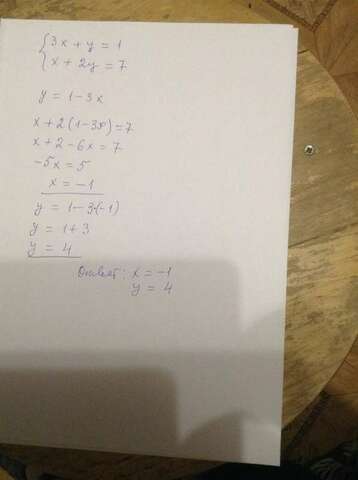 {3x + y = 1
{x + 2y = 7
y = 1 - 3x
x + 2(1 - 3x) = 7
x + 2 - 6x = 7
-5x = 5
x = -1
y = 1 - 3·(-1)
y = 1 + 3
y = 4
Ответ: x = -1
y = 4